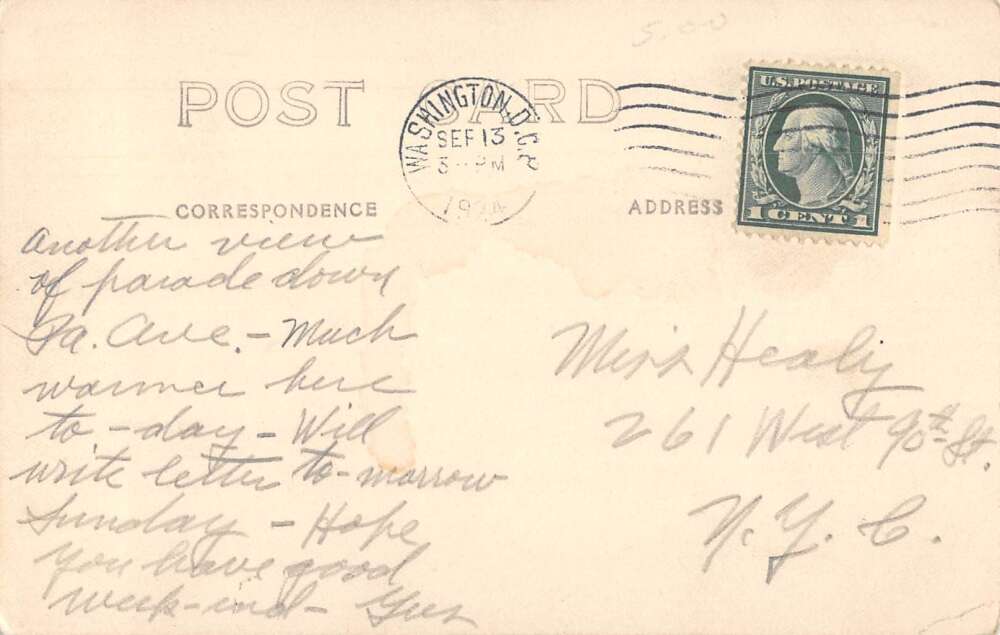 5.00
POST CARD
WASHINGTON, D.C.
SEP 13
3 - PM
192
U.S. POSTAGE
1 CENT 1
CORRESPONDENCE
ADDRESS
Another view
of parade down
Pa. Ave. - Much
warmer here
to-day - Will
write letter to-morrow
Sunday - Hope
you have good
week-end - Gus
Miss Healy
261 West 90th St.
N.Y.C.